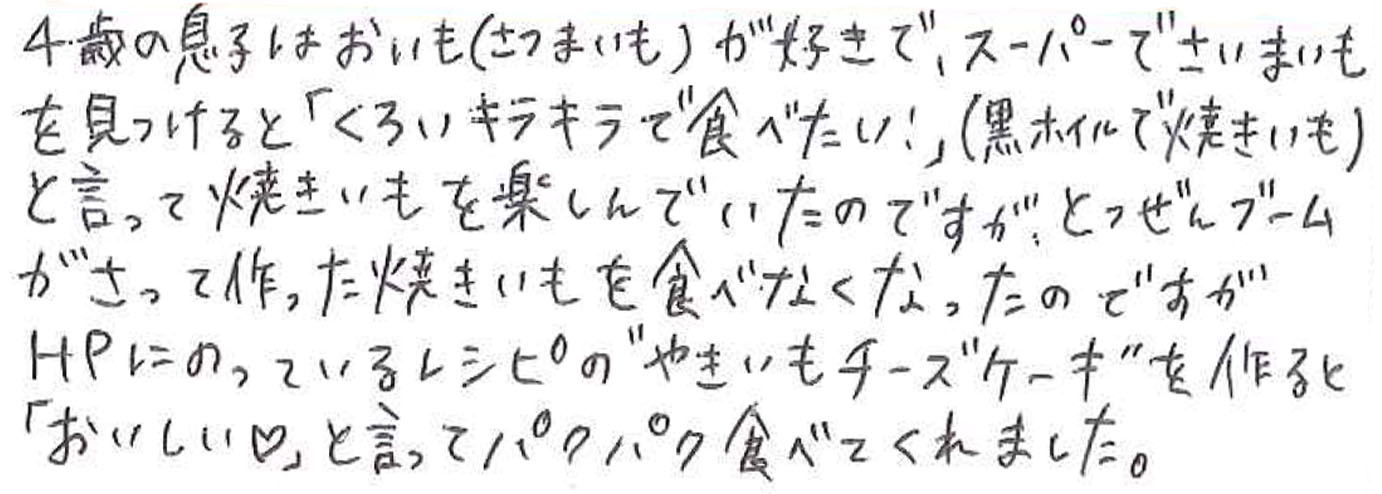 4歳の息子はおいも(さつまいも)が好きで、スーパーでさいまいも
を見つけると「くろいキラキラで食べたい!」(黒ホイルで焼きいも)
と言って焼きいもを楽しんでいたのですが、とつぜんブーム
がさって作った焼きいもを食べなくなったのですが
HPにのっているレシピの"やきいもチーズケーキ"を作ると
「おいしい♡」と言ってパクパク食べてくれました。